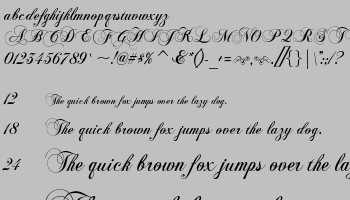 abcdefghijklmnopqrstuvwxyz
ABCDEFGHIJKLMNOPQRST
0123456789
12 The quick brown fox jumps over the lazy dog.
18 The quick brown fox jumps over the lazy dog.
24 The quick brown fox jumps over the la